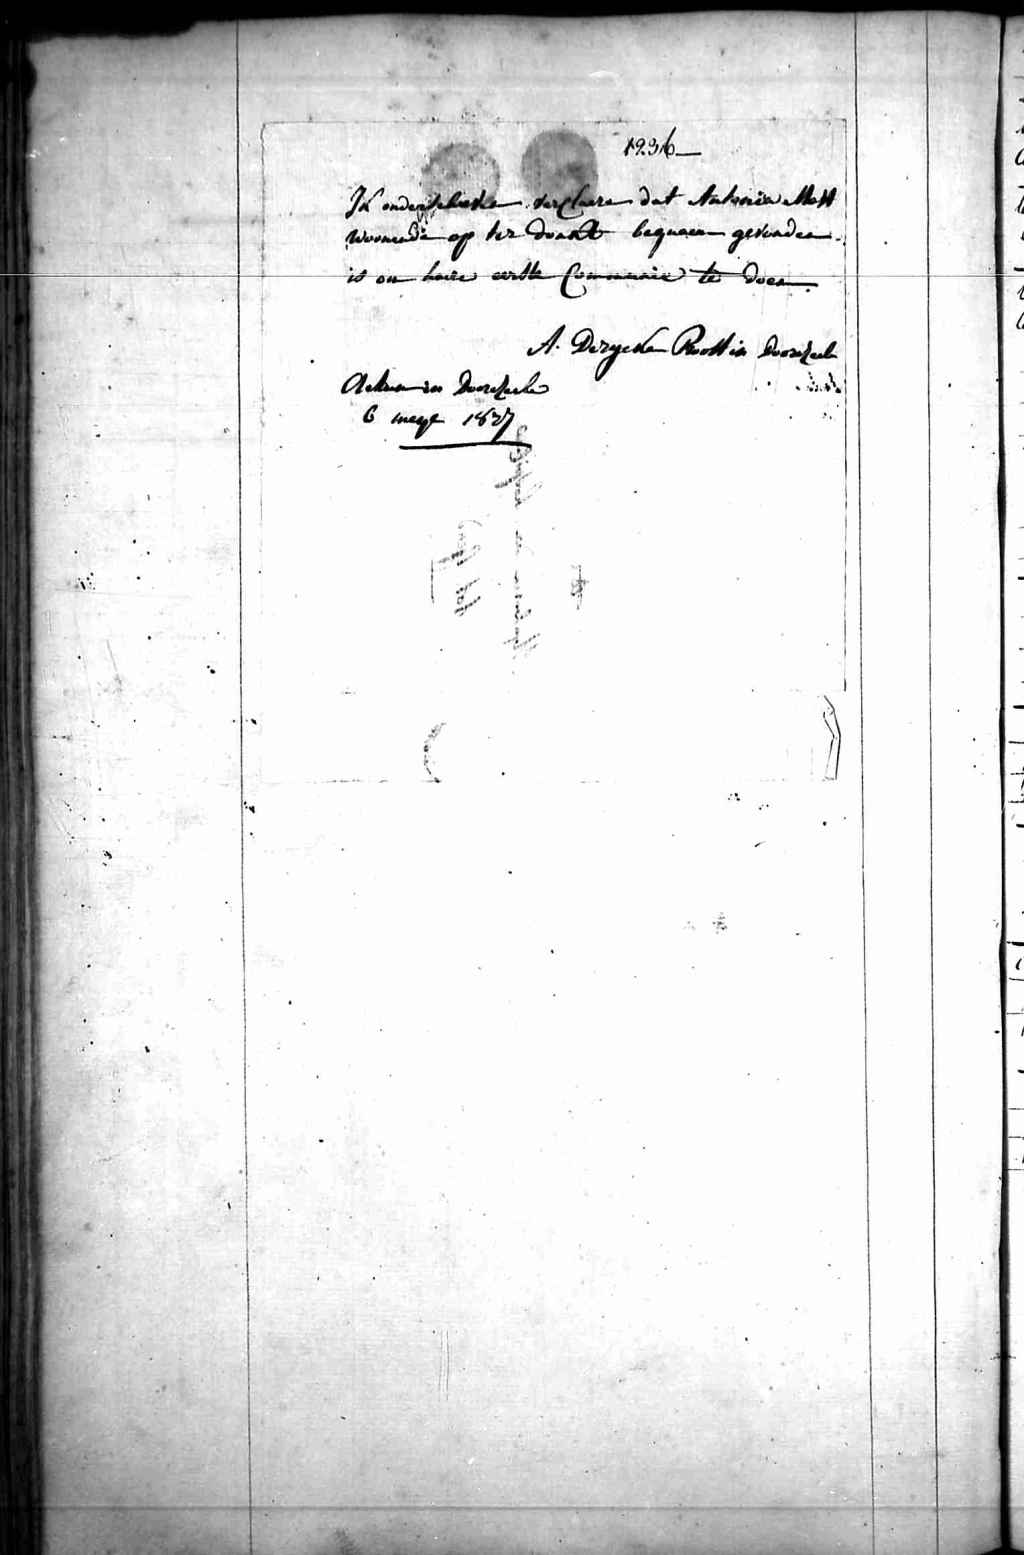 1236
Ik ondergeschreve verclaere dat Antonia Mast
woonende op ter donckt bequaem gevonden
is om haere eerste Communie te doen
A. Derycke Pastor Doorezeele
Actum in Doorezeele
6 meye 1827